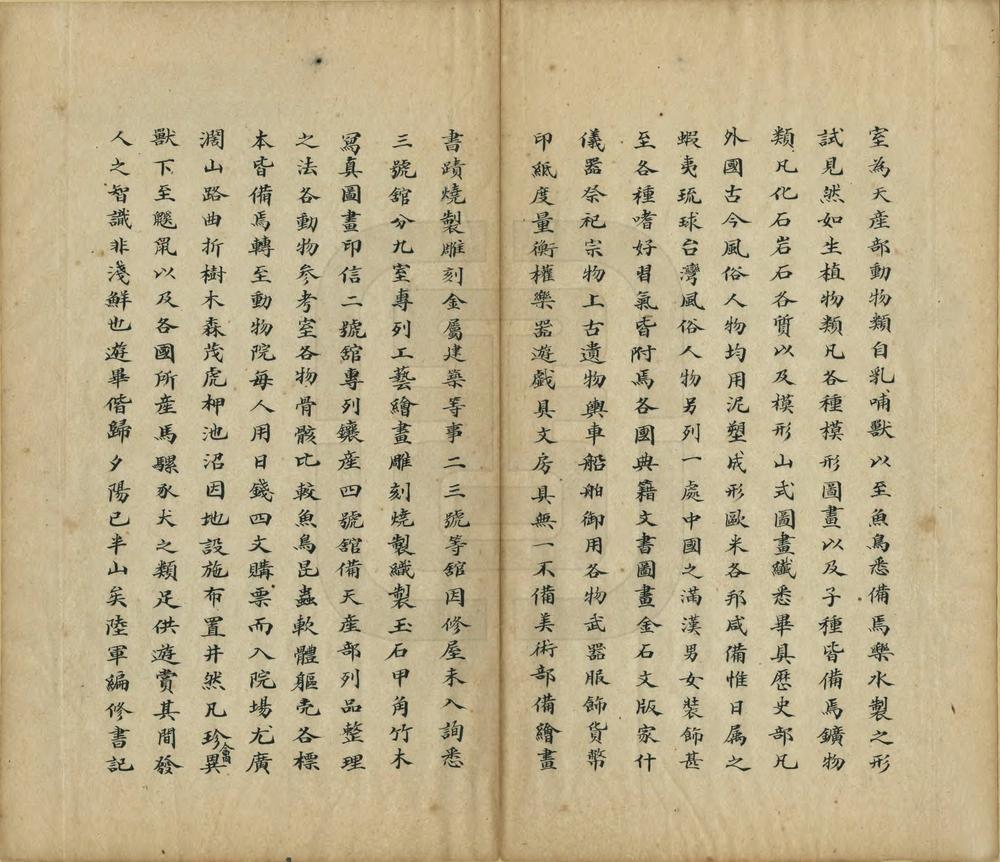 室為天産部動物類自乳哺獸以至魚鳥悉備焉藥水製之形
試見然如生植物類凡各種模形圖畫以及子種皆備焉鑛物
類凡化石岩石各質以及模形山式圖畫纖悉畢具歷史部凡
外國古今風俗人物均用泥塑成形歐米各邦咸備惟日属之
蝦夷琉球台灣風俗人物另列一處中國之滿漢男女裝飾甚
至各種嗜好習氣皆附焉各國典籍文書圖畫金石文版家什
儀器祭祀宗物上古遺物輿車船舶御用各物武器服飾貨幣
印紙度量衡權樂器遊戲具文房具無一不備美術部備繪畫
書蹟燒製雕刻金屬建築等事二三號等舘因修屋未入詢悉
三號舘分九室專列工藝繪畫雕刻燒製織製玉石甲角竹木
寫真圖畫印信二號舘專列鑛産四號舘備天産部列品整理
之法各動物參考室各物骨骸比較魚鳥昆蟲軟體軀壳各標
本皆備焉轉至動物院每人用日錢四文購票而入院場尤廣
濶山路曲折樹木森茂虎柙池沼因地設施布置井然凡珍禽異
獸下至鼷鼠以及各國所産馬騾豕犬之類足供遊賞其間發
人之智識非淺鮮也遊畢偕歸夕陽已半山矣陸軍編修書記